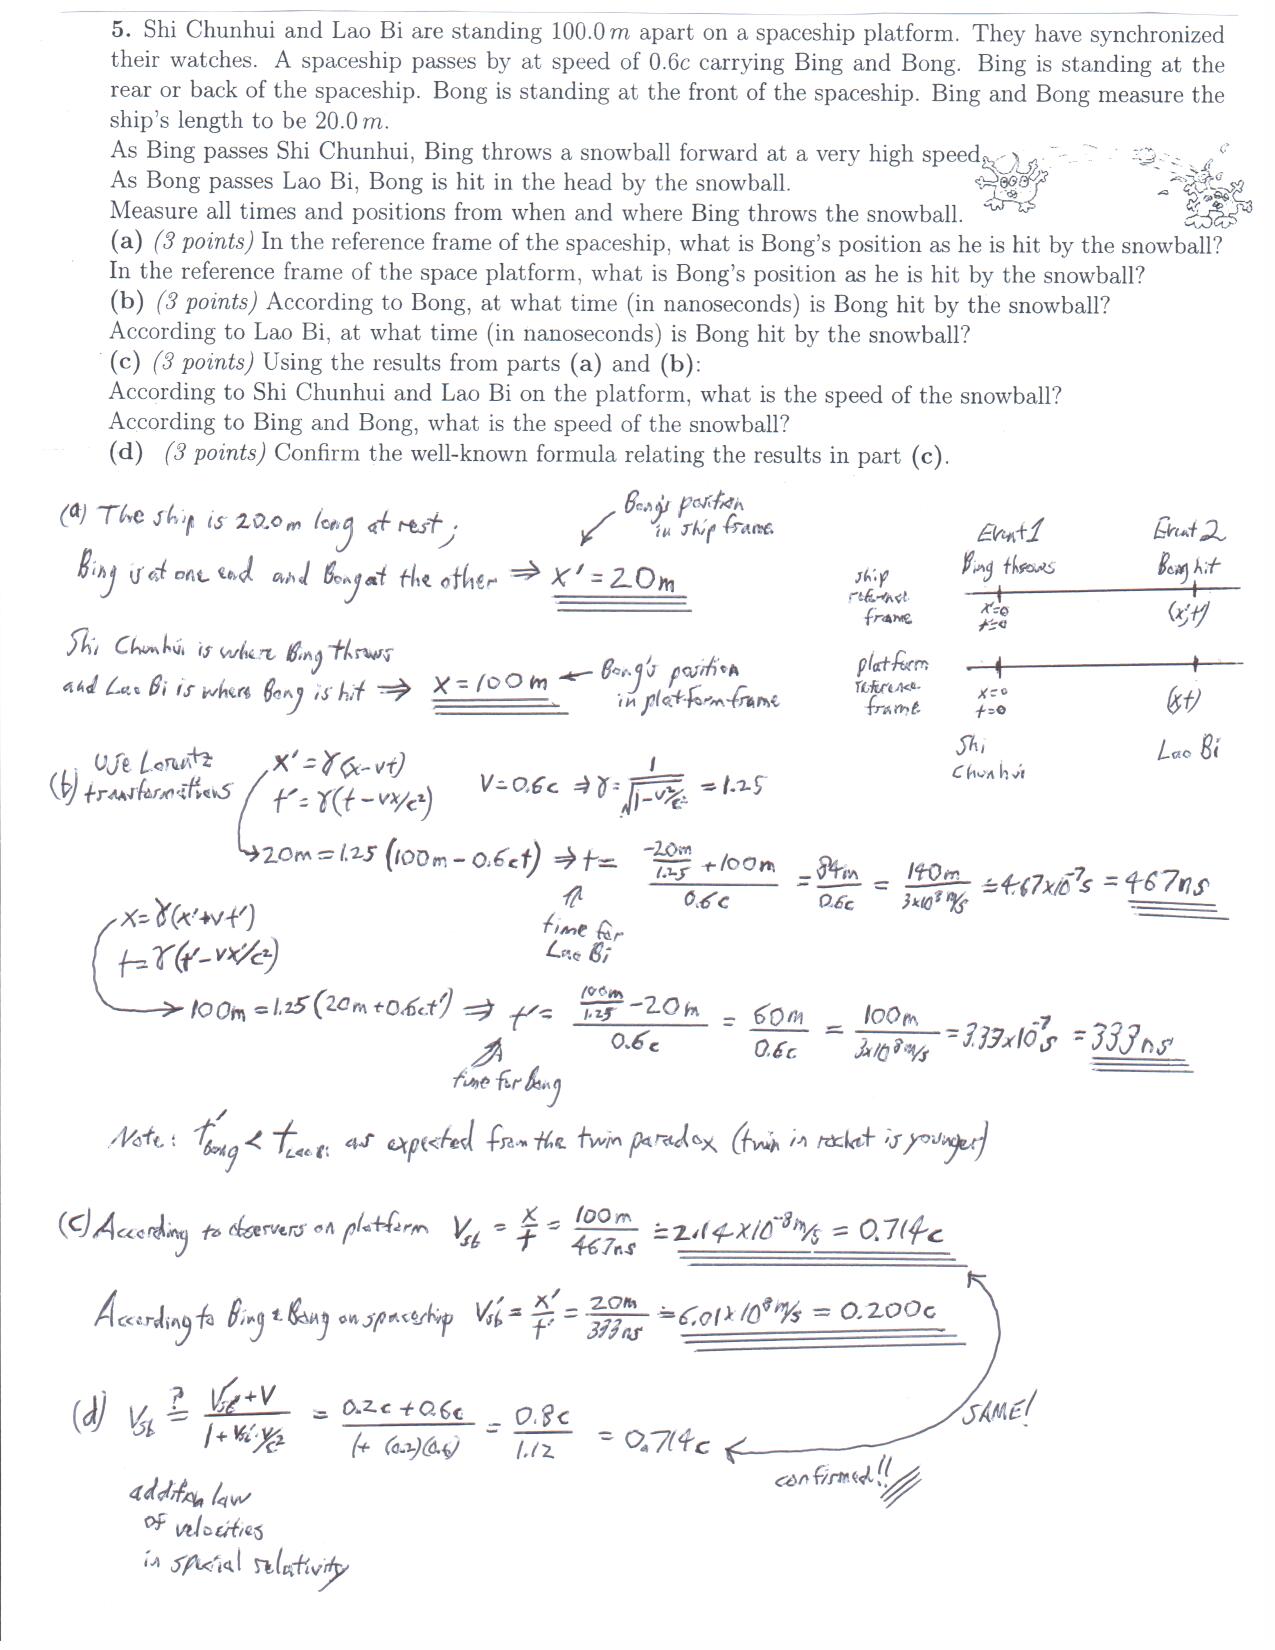 5. Shi Chunhui and Lao Bi are standing 100.0 m apart on a spaceship platform. They have synchronized
their watches. A spaceship passes by at speed of 0.6c carrying Bing and Bong. Bing is standing at the
rear or back of the spaceship. Bong is standing at the front of the spaceship. Bing and Bong measure the
ship's length to be 20.0 m.
As Bing passes Shi Chunhui, Bing throws a snowball forward at a very high speed.
As Bong passes Lao Bi, Bong is hit in the head by the snowball.
Measure all times and positions from when and where Bing throws the snowball.
(a) (3 points) In the reference frame of the spaceship, what is Bong's position as he is hit by the snowball?
In the reference frame of the space platform, what is Bong's position as he is hit by the snowball?
(b) (3 points) According to Bong, at what time (in nanoseconds) is Bong hit by the snowball?
According to Lao Bi, at what time (in nanoseconds) is Bong hit by the snowball?
(c) (3 points) Using the results from parts (a) and (b):
According to Shi Chunhui and Lao Bi on the platform, what is the speed of the snowball?
According to Bing and Bong, what is the speed of the snowball?
(d) (3 points) Confirm the well-known formula relating the results in part (c).
(a) The ship is 20.0m long at rest;
Bing is at one end and Bong at the other ⇒ x' = 20m
Bong's position
in ship frame
Shi Chunhui is where Bing throws
and Lao Bi is where Bong is hit ⇒ x = 100m ← Bong's position
in platform frame
Event 1 Event 2
Bing throws Bong hit
ship
reference
frame
x'=0
t'=0
(x',t')
platform
reference
frame
x=0
t=0
(x,t)
Shi
Chunhui
Lao Bi
(b) Use Lorentz
transformations
x' = γ(x-vt)
t' = γ(t-vx/c²)
V=0.6c ⇒ γ = 1/√(1-v²/c²) = 1.25
→ 20m = 1.25 (100m - 0.6ct) ⇒ t = (-20m/1.25 + 100m)/0.6c = 84m/0.6c = 140m/3x10⁸ m/s ≐ 4.67x10⁻⁷s = 467ns
time for
Lao Bi
x = γ(x'+vt')
t = γ(t'-vx'/c²)
→ 100m = 1.25 (20m + 0.6ct') ⇒ t' = (100m/1.25 - 20m)/0.6c = 60m/0.6c = 100m/3x10⁸ m/s = 3.33x10⁻⁷s = 333ns
time for Bong
Note: t'Bong < tLao Bi as expected from the twin paradox (twin in rocket is younger)
(c) According to observers on platform Vsb = x/t = 100m/467ns ≐ 2.14x10⁻⁸ m/s = 0.714c
According to Bing & Bong on spaceship Vsb' = x'/t' = 20m/333ns ≐ 6.01x10⁸ m/s = 0.200c
(d) Vsb ?= (Vsb' + V)/(1 + Vsb'·V/c²) = (0.2c + 0.6c)/(1 + (0.2)(0.6)) = 0.8c/1.12 = 0.714c
SAME!
confirmed!!
addition law
of velocities
in special relativity